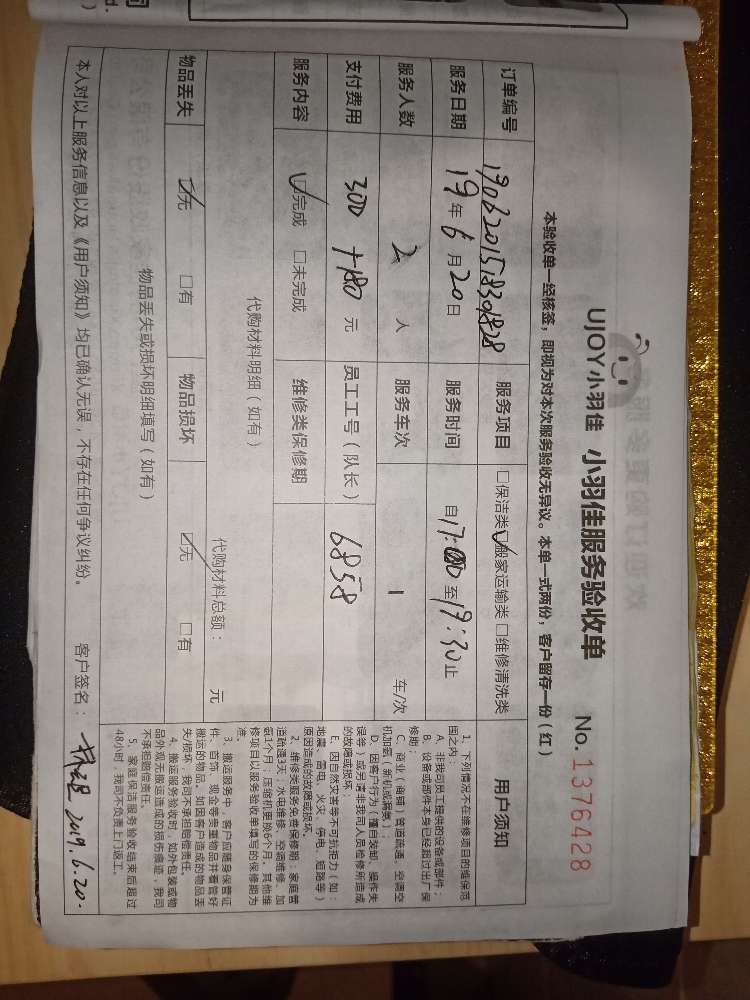 UJOY小羽佳 小羽佳服务验收单 No. 1376428
本验收单一经核签，即视为对本次服务验收无异议。本单一式两份，客户留存一份（红）
订单编号 190620151830 1828 服务项目 □保洁类☑搬家运输类 □维修清洗类
服务日期 19年6月20日 服务时间 自17:00至19:30止
服务人数 2 人 服务车次 1 车/次
支付费用 300+180 元 员工工号（队长） 6858
服务内容 ☑完成 □未完成 维修类保修期
代购材料明细（如有）
代购材料总额： 元
物品丢失 ☑无 □有 物品损坏 ☑无 □有
物品丢失或损坏明细填写（如有）
本人对以上服务信息以及《用户须知》均已确认无误，不存在任何争议纠纷。 客户签名： 2019.6.20.
用户须知
1、下列情况不在维修项目的维保范
围之内：
A、非我司员工提供的设备或部件；
B、设备或部件本身已经超过出厂保
修期；
C、商业（商铺）管道疏通、空调空
机加氨（新机或漏氨）；
D、因客户行为（擅自装卸、操作失
误等）或另请非我司人员检修所造成
的故障或损坏。
E、因自然灾害等不可抗拒力（如：
地震、雷电、火灾、停电、短路等）
原因造成的故障或损坏。
2、维修类服务免费保修期：家庭管
道疏通3天；水电维修、空调维修、加
氨1个月；压缩机更换6个月，其他维
修项目以服务验收单填写的保修期为
准。
3、搬运服务中，客户应随身保管证
件、首饰、现金等贵重物品并看管好
搬运的物品。如因客户造成的物品丢
失/损坏，我司不承担赔偿责任。
4、搬运服务验收时，如外包装或物
品外观无搬运造成的损伤痕迹，我司
不承担赔偿责任。
5、家庭保洁服务验收结束后超过
48小时，我司不负责上门返工。